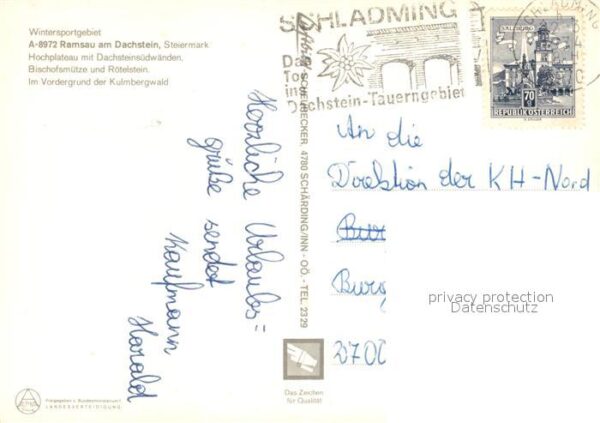 Wintersportgebiet
A-8972 Ramsau am Dachstein, Steiermark
Hochplateau mit Dachsteinsüdwänden,
Bischofsmütze und Rötelstein.
Im Vordergrund der Kulmbergwald
SCHLADMING
Das
Tor
ins
Dachstein-Tauerngebiet
SCHLADMING
SALZBURG
70 g
REPUBLIK ÖSTERREICH
4780 SCHÄRDING/INN - OÖ. - TEL. 2329
Herzliche Urlaubs=
grüße sendet
Kaufmann
Harald
An die
Direktion der KH-Nord
Bur
Burg
3700
privacy protection
Datenschutz
Das Zeichen
für Qualität
Freigegeben v. Bundesministerium f.
LANDESVERTEIDIGUNG